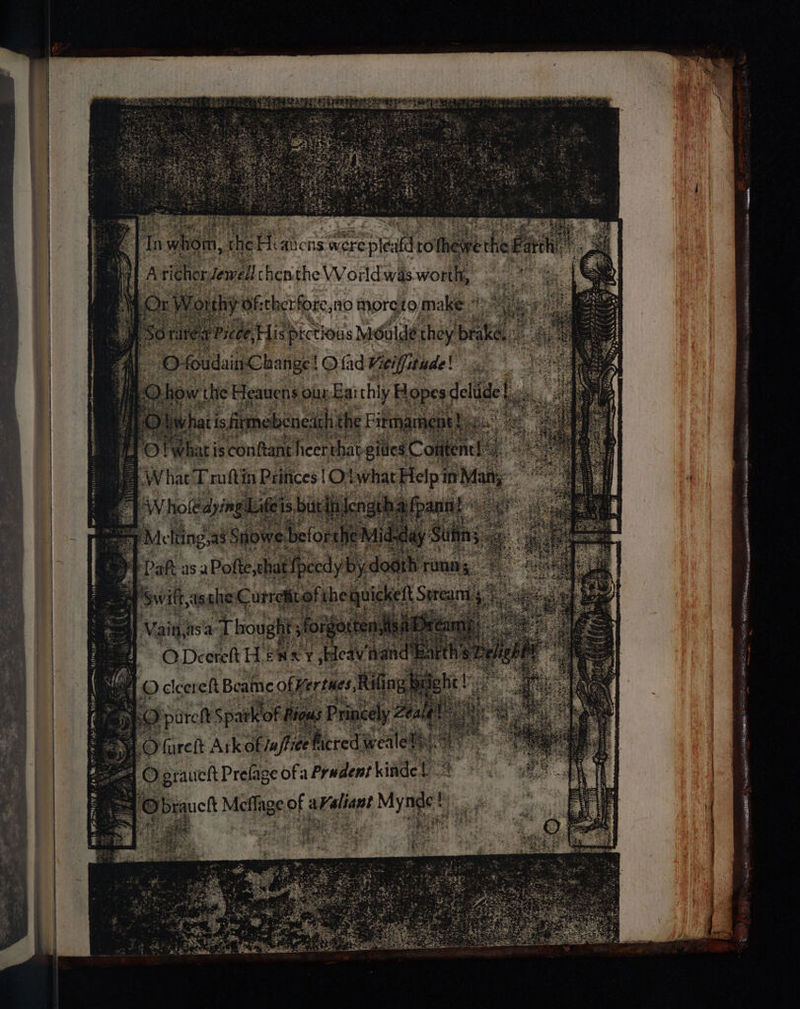 In whom, the Heauens were pleaſd to ſhewe the Earth,
A richer Jewell then the VVorld was worth,
Or Worthy of: therfore, no more to make
So rare a Piece, His precious Moulde they brake.
O ſoudain Change! O ſad Viciſſitude!
O how the Heauens our Earthly Hopes delude!
O! what is firme beneath the Firmament!
O! what is conſtant heer that giues Content!
What Truſt in Princes! O! what Help in Man,
Whoſe dying Life is but in length a ſpann!
Melting, as Snowe before the Mid-day Sunn;
Paſt as a Poſte, that ſpeedy by dooth runn;
Swift, as the Current of the quickeſt Stream;
Vain, as a Thought; forgotten, as a Dream;
O Deereſt HENRY, Heav'n and Earth's Delight!
O cleereſt Beame of Vertues, Riſing bright!
O pureſt Spark of Pious Princely Zeale!
O ſureſt Ark of Juſtice ſacred weale!
O graueſt Preſage of a Prudent kinde!
O braueſt Meſſage of a Valiant Mynde!
O